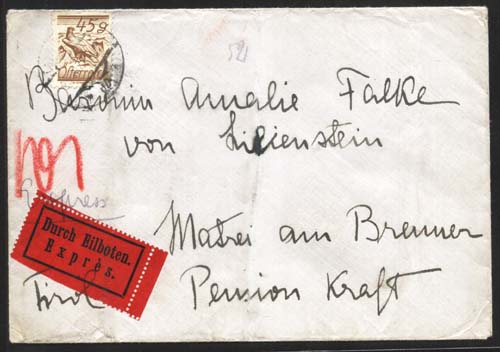 45g
Österreich
Baronin Amalie Falke
von Lilienstein
Express
Durch Eilboten.
Exprès.
Matrei am Brenner
Tirol Pension Kraft